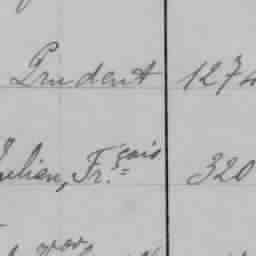 Prudent 1274
Julien, Fr.çois 320